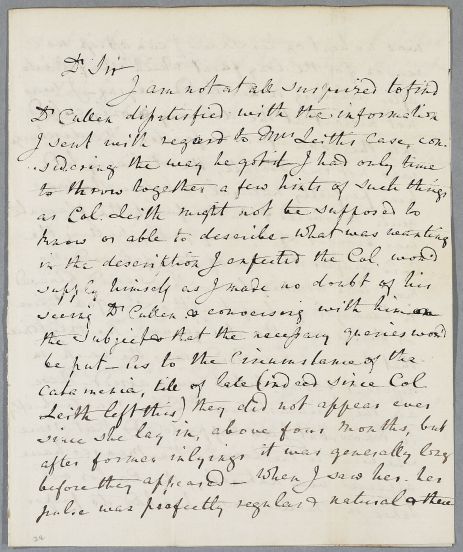 Dr Sir
I am not at all surprized to find
Dr Cullen dissatisfied with the information
I sent with regard to Mrs Leiths Case, con-
sidering the way he got it I had only time
to throw together a few hints of such things
as Col. Leith might not be supposed to
know or able to describe - what was wanting
in the description I expected the Col. would
supply himself as I made no doubt of his
seeing Dr Cullen & conversing with him on
the subject & that the necessary queries would
be put - As to the Circumstance of the
Catamenia, till of late (indeed since Col
Leith left this) they did not appear ever
since she lay in, above four months, but
after former inlyings it was generally long
before they appeared - When I saw her. her
pulse was perfectly regular & natural & there